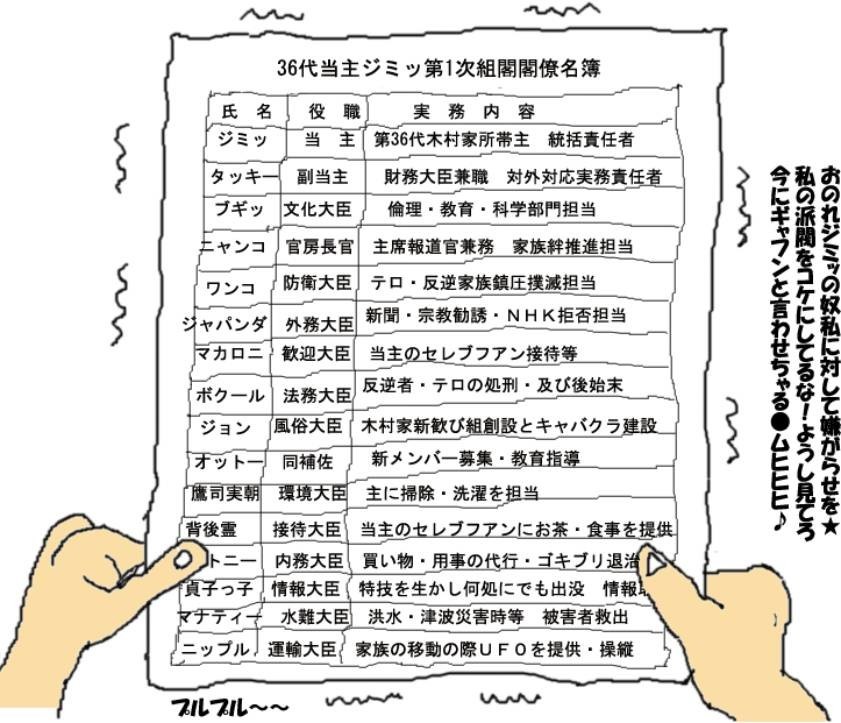 36代当主ジミッ第1次組閣閣僚名簿
氏 名 役 職 実 務 内 容
ジミッ 当 主 第36代木村家所帯主 統括責任者
タッキー 副当主 財務大臣兼職 対外対応実務責任者
ブギッ 文化大臣 倫理・教育・科学部門担当
ニャンコ 官房長官 主席報道官兼務 家族絆推進担当
ワンコ 防衛大臣 テロ・反逆家族鎮圧撲滅担当
ジャパンダ 外務大臣 新聞・宗教勧誘・NHK拒否担当
マカロニ 歓迎大臣 当主のセレブフアン接待等
ボクール 法務大臣 反逆者・テロの処刑・及び後始末
ジョン 風俗大臣 木村家新歓び組創設とキャバクラ建設
オットー 同補佐 新メンバー募集・教育指導
鷹司実朝 環境大臣 主に掃除・洗濯を担当
背後霊 接待大臣 当主のセレブフアンにお茶・食事を提供
トニー 内務大臣 買い物・用事の代行・ゴキブリ退治
貞子っ子 情報大臣 特技を生かし何処にでも出没 情報
マナティー 水難大臣 洪水・津波災害時等 被害者救出
ニップル 運輸大臣 家族の移動の際UFOを提供・操縦
おのれジミッの奴私に対して嫌がらせを★
私の派閥をコケにしてるな!ようし見てろ
今にギャフンと言わせちゃる●ムヒヒヒ♪
プルプル～～